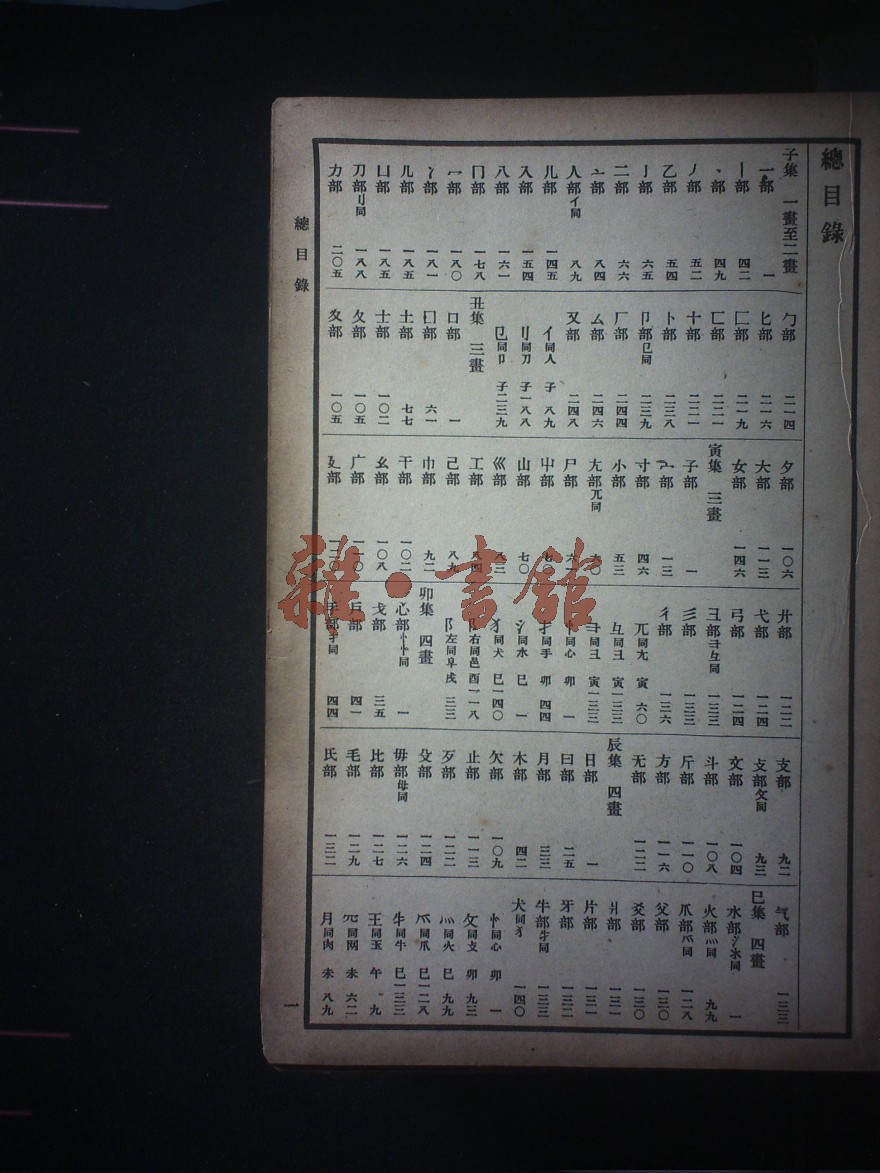 總目錄
子集 一畫至二畫
一部 一
丨部 四二
丶部 四九
丿部 五二
乙部 五四
亅部 六五
二部 六六
亠部 八四
人部亻同 八九
儿部 一四五
入部 一五四
八部 一六一
冂部 一七八
冖部 一八〇
冫部 一八一
几部 一八五
凵部 一八五
刀部刂同 一八八
力部 二〇五
勹部 二一四
匕部 二一六
匚部 二一九
匸部 二二一
十部 二二一
卜部 二三八
卩部㔾同 二三九
厂部 二四四
厶部 二四六
又部 二四八
亻同人 子 八九
刂同刀 子一八八
㔾同卩 子二三九
丑集 三畫
口部 一
囗部 六一
土部 七七
士部 一〇二
夂部 一〇五
夊部 一〇五
夕部 一〇六
大部 一一三
女部 一四六
寅集 三畫
子部 一
宀部 一三
寸部 四六
小部 五三
尢部兀同
尸部
屮部 七〇
山部 七〇
巛部 八三
工部 八四
己部 八九
巾部 九二
干部 一〇二
幺部 一〇八
广部 一一〇
廴部
廾部 一二二
弋部 一二四
弓部 一二四
彐部彑同 一三三
彡部 一三三
彳部 一三六
兀同尢 寅 六〇
彑同彐 寅一三三
同彐 寅一三三
忄同心 卯 一
扌同手 卯 四四
氵同水 巳 一
犭同犬 巳一四〇
阝右同邑 酉一一八
阝左同阜 戌 三三
卯集 四畫
心部忄同 一
戈部 三五
戶部 四一
手部扌同 四四
支部 九二
攴部攵同 九三
文部 一〇四
斗部 一〇八
斤部 一一〇
方部 一一六
无部 一二二
辰集 四畫
日部 一
曰部 二五
月部 三三
木部 四二
欠部 一〇九
止部 一一三
歹部 一二二
殳部 一二四
毋部母同 一二六
比部 一二七
毛部 一二九
氏部 一三二
气部 一三三
巳集 四畫
水部氵氺同 一
火部灬同 九九
爪部爫同 一二八
父部 一三〇
爻部 一三〇
爿部 一三一
片部 一三一
牙部 一三二
牛部牜同 一三三
犬同犭 一四〇
㣺同心 卯 一
攵同攴 卯 九三
灬同火 巳 九九
爫同爪 巳一二八
牜同牛 巳一三三
王同玉 午 九
罒同网 未 六二
月同肉 未 八九
總目錄
一
雜·書館